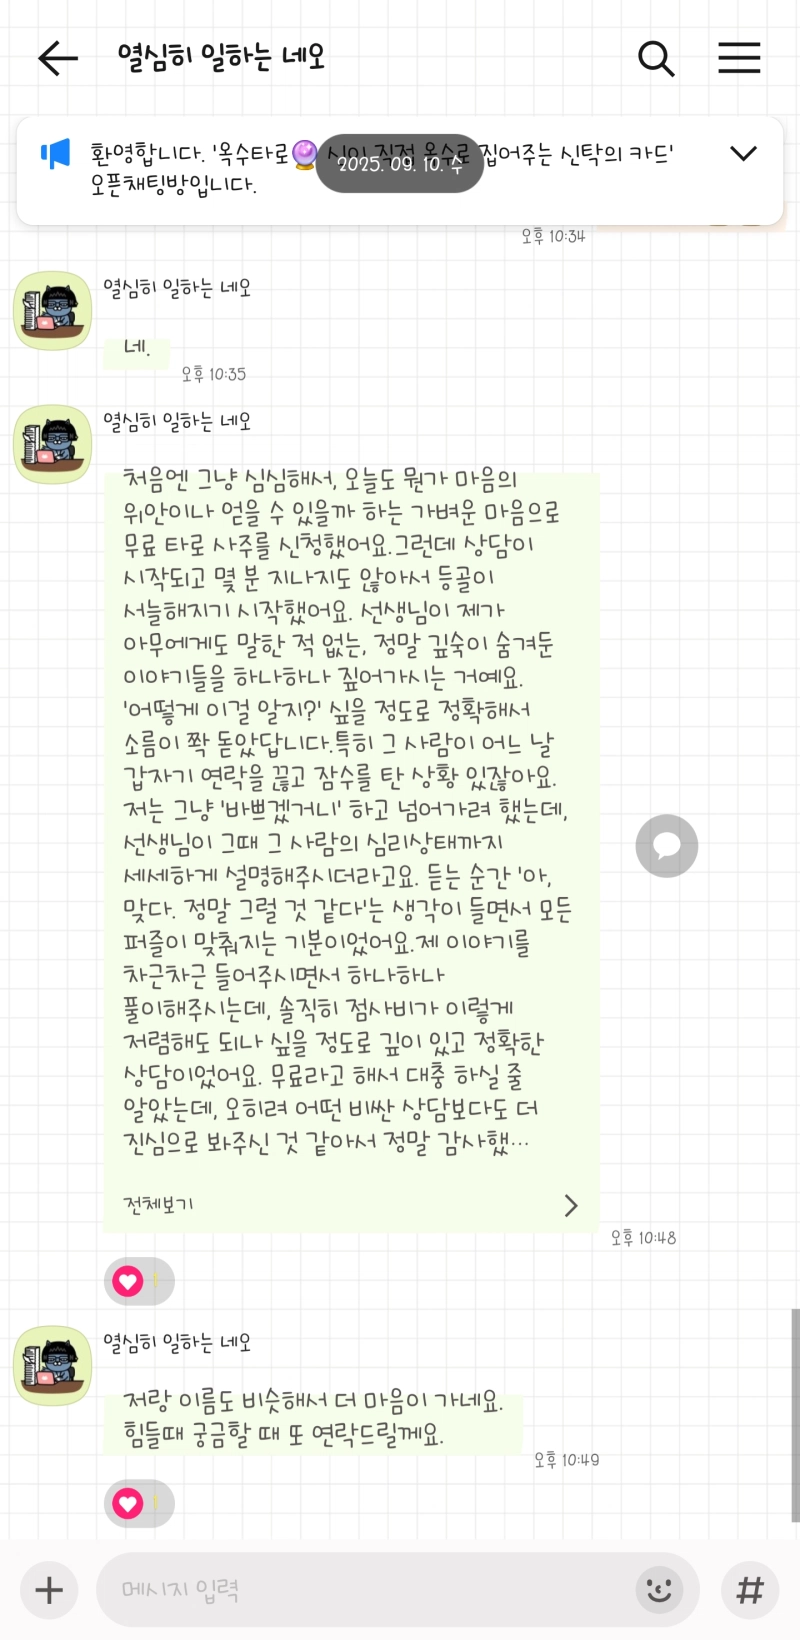 열심히 일하는 네오
환영합니다. '옥수타로🔮 신이 직접 옥수로 집어주는 신탁의 카드'
2025. 09. 10. 수
오픈채팅방입니다.
오후 10:34
열심히 일하는 네오
네.
오후 10:35
열심히 일하는 네오
처음엔 그냥 심심해서, 오늘도 뭔가 마음의
위안이나 얻을 수 있을까 하는 가벼운 마음으로
무료 타로 사주를 신청했어요.그런데 상담이
시작되고 몇 분 지나지도 않아서 등골이
서늘해지기 시작했어요. 선생님이 제가
아무에게도 말한 적 없는, 정말 깊숙이 숨겨둔
이야기들을 하나하나 짚어가시는 거예요.
'어떻게 이걸 알지?' 싶을 정도로 정확해서
소름이 쫙 돋았답니다.특히 그 사람이 어느 날
갑자기 연락을 끊고 잠수를 탄 상황 있잖아요.
저는 그냥 '바쁘겠거니' 하고 넘어가려 했는데,
선생님이 그때 그 사람의 심리상태까지
세세하게 설명해주시더라고요. 듣는 순간 '아,
맞다. 정말 그럴 것 같다'는 생각이 들면서 모든
퍼즐이 맞춰지는 기분이었어요.제 이야기를
차근차근 들어주시면서 하나하나
풀이해주시는데, 솔직히 점사비가 이렇게
저렴해도 되나 싶을 정도로 깊이 있고 정확한
상담이었어요. 무료라고 해서 대충 하실 줄
알았는데, 오히려 어떤 비싼 상담보다도 더
진심으로 봐주신 것 같아서 정말 감사했…
전체보기
오후 10:48
열심히 일하는 네오
저랑 이름도 비슷해서 더 마음이 가네요.
힘들때 궁금할 때 또 연락드릴께요.
오후 10:49
메시지 입력
#